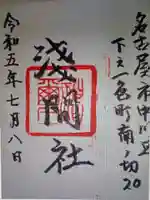 名古屋市中川区
下之一色町南ノ切20
浅間社
令和五年七月八日